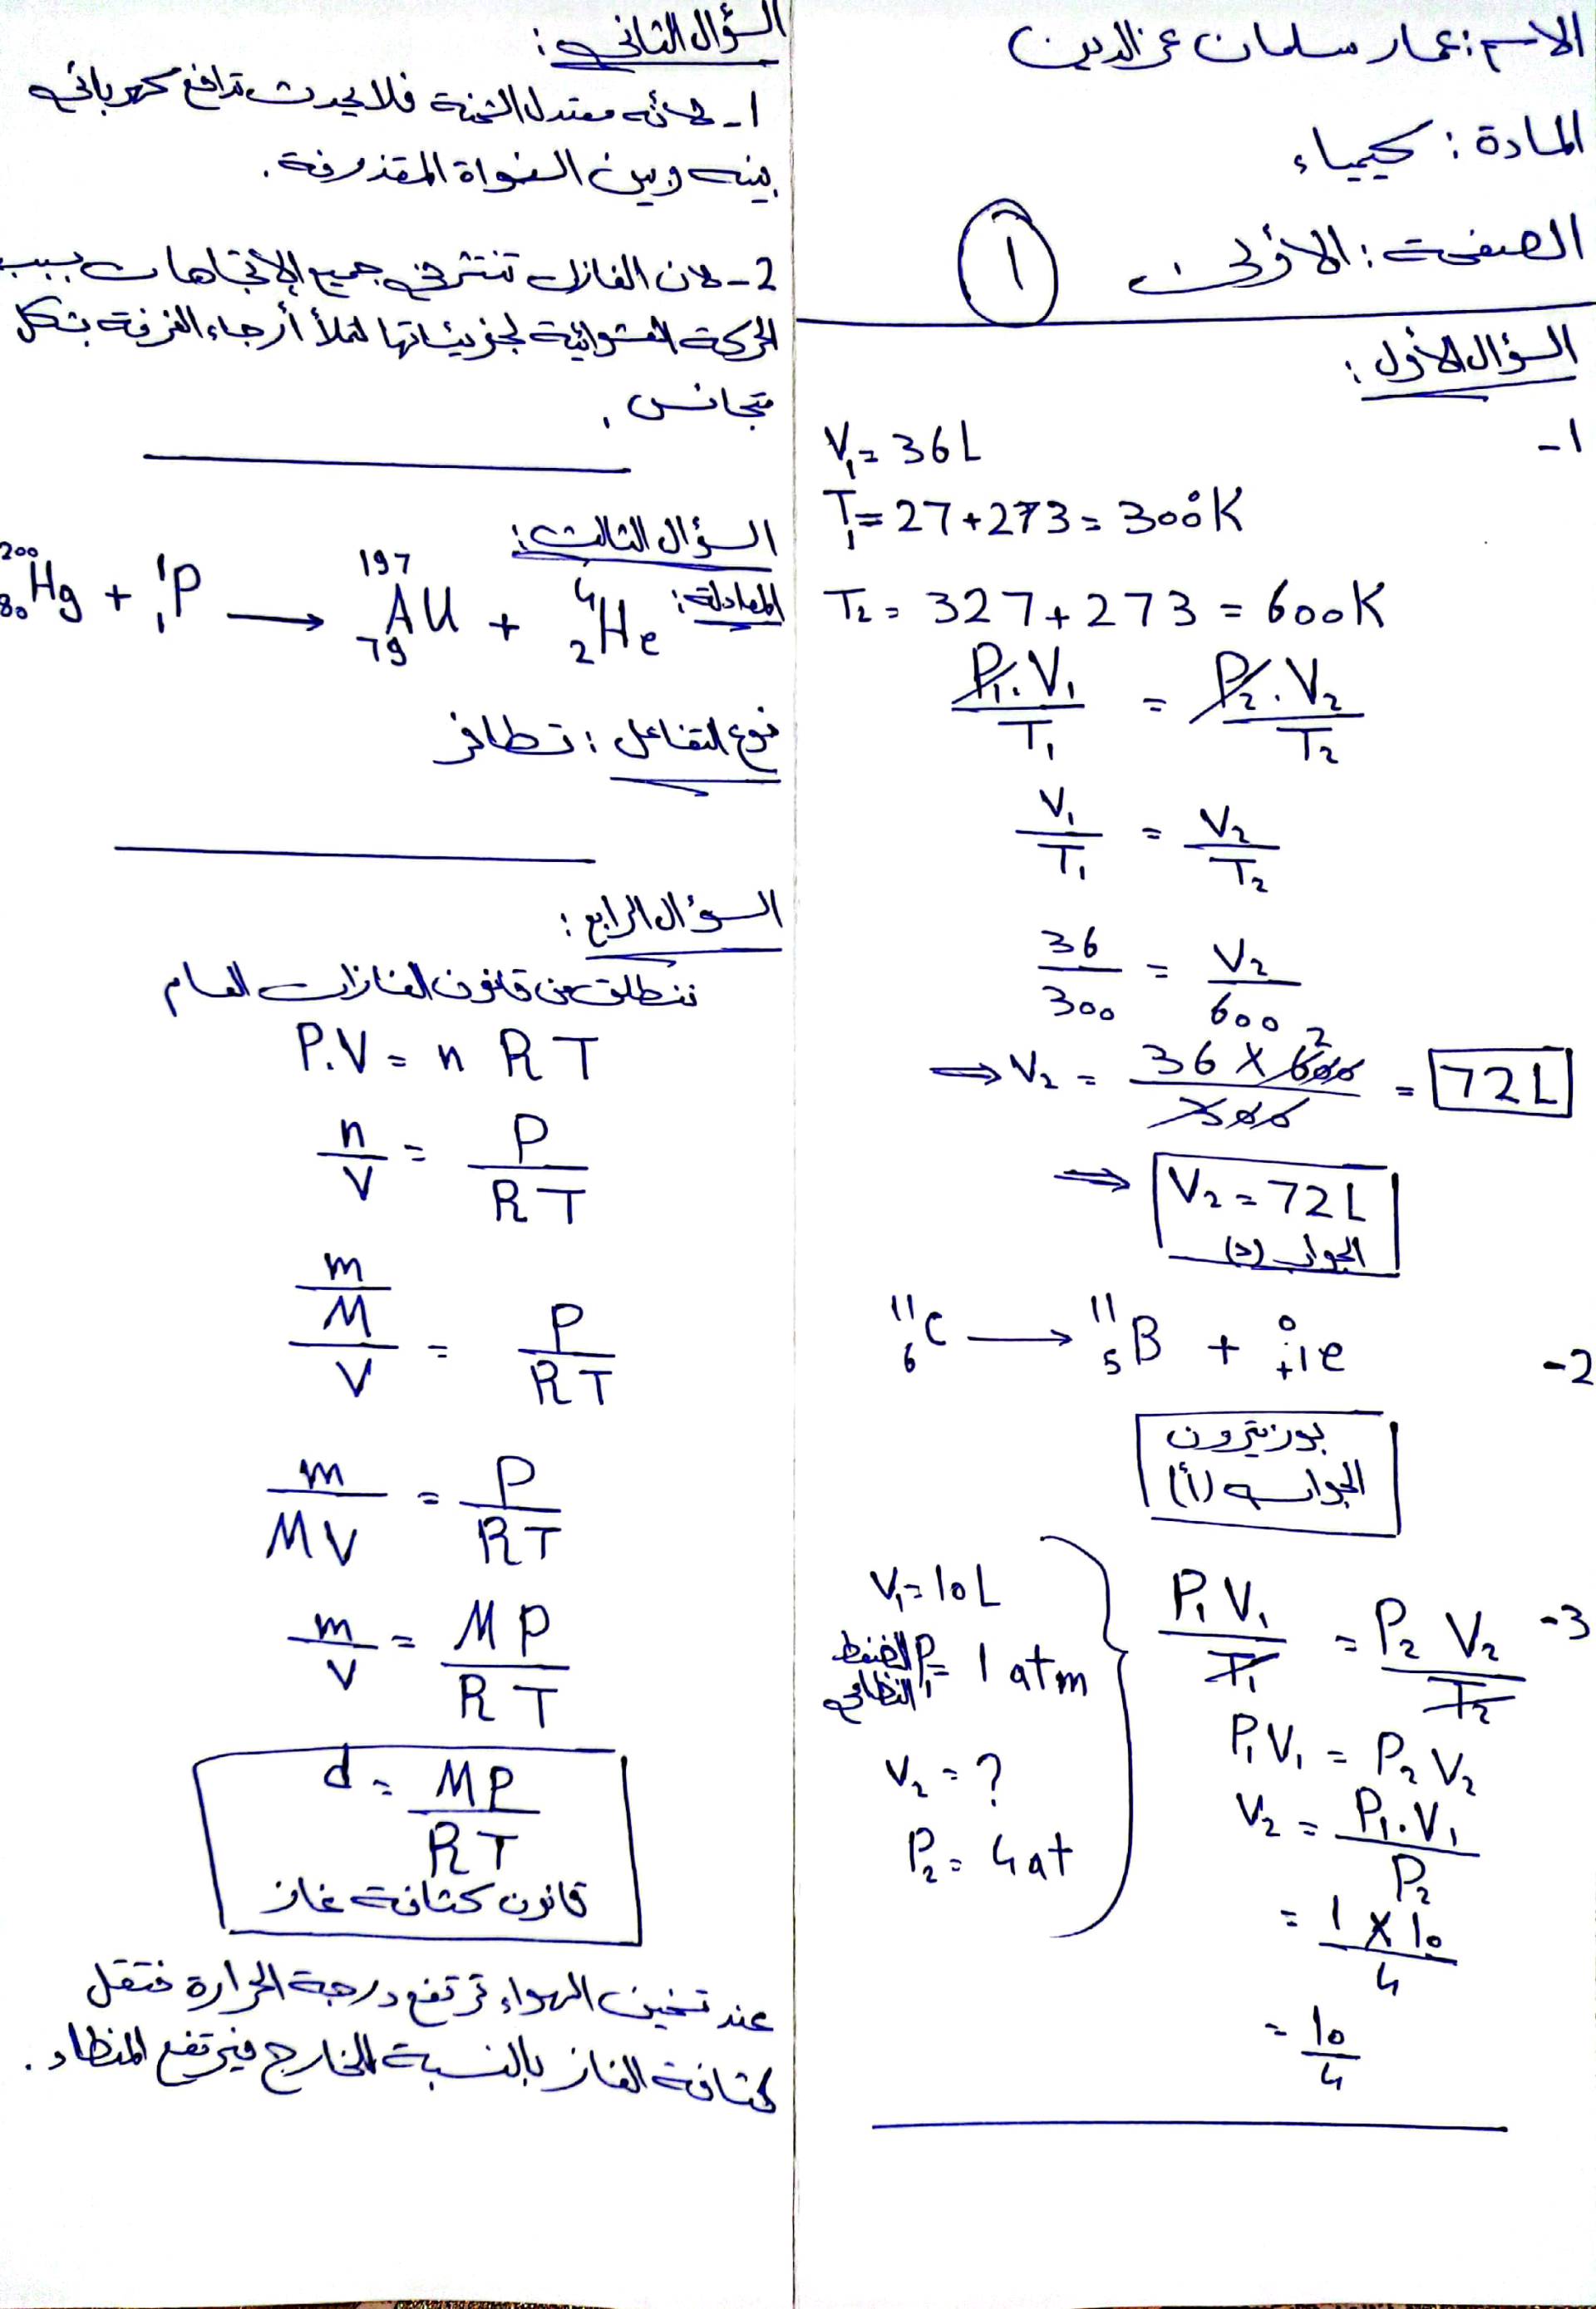 الاسم: عمار سلمان عز الدين
المادة: كيمياء
الصفحة: الأولى
1
السؤال الأول:
1-
V₁ = 36 L
T₁ = 27 + 273 = 300°K
T₂ = 327 + 273 = 600K
P₁.V₁/T₁ = P₂.V₂/T₂
V₁/T₁ = V₂/T₂
36/300 = V₂/600
⇒ V₂ = 36 × 600/300 = 72 L
2
⇒ V₂ = 72 L
الجواب (د)
2-
¹¹₆C → ¹¹₅B + ⁰₊₁e
بوزيترون
الجواب (أ)
3-
P₁V₁/T₁ = P₂V₂/T₂
P₁V₁ = P₂V₂
V₂ = P₁.V₁/P₂
= 1 × 10/4
= 10/4
V₁ = 10 L
الضغط النظامي P₁ = 1 atm
V₂ = ?
P₂ = 4 at
السؤال الثاني:
1- لأنه معتدل الشحنة فلا يحدث تدافع كهربائي
بينه وبين النواة المقذوفة.
2- لان الغازات تنتشر في جميع الإتجاهات بسبب
الحركة العشوائية لجزيئاتها لتملأ أرجاء الغرفة بشكل
متجانس.
السؤال الثالث:
المعادلة: ²⁰⁰₈₀Hg + ¹₁P → ¹⁹⁷₇₉AU + ⁴₂He
نوع التفاعل: تطافر
السؤال الرابع:
ننطلق من قانون الغازات العام
P.V = n R T
n/V = P/RT
(m/M)/V = P/RT
m/MV = P/RT
m/V = MP/RT
d = MP/RT
قانون كثافة غاز
عند تسخين الهواء ترتفع درجة الحرارة فتقل
كثافة الغاز بالنسبة للخارج فيرتفع المنطاد.